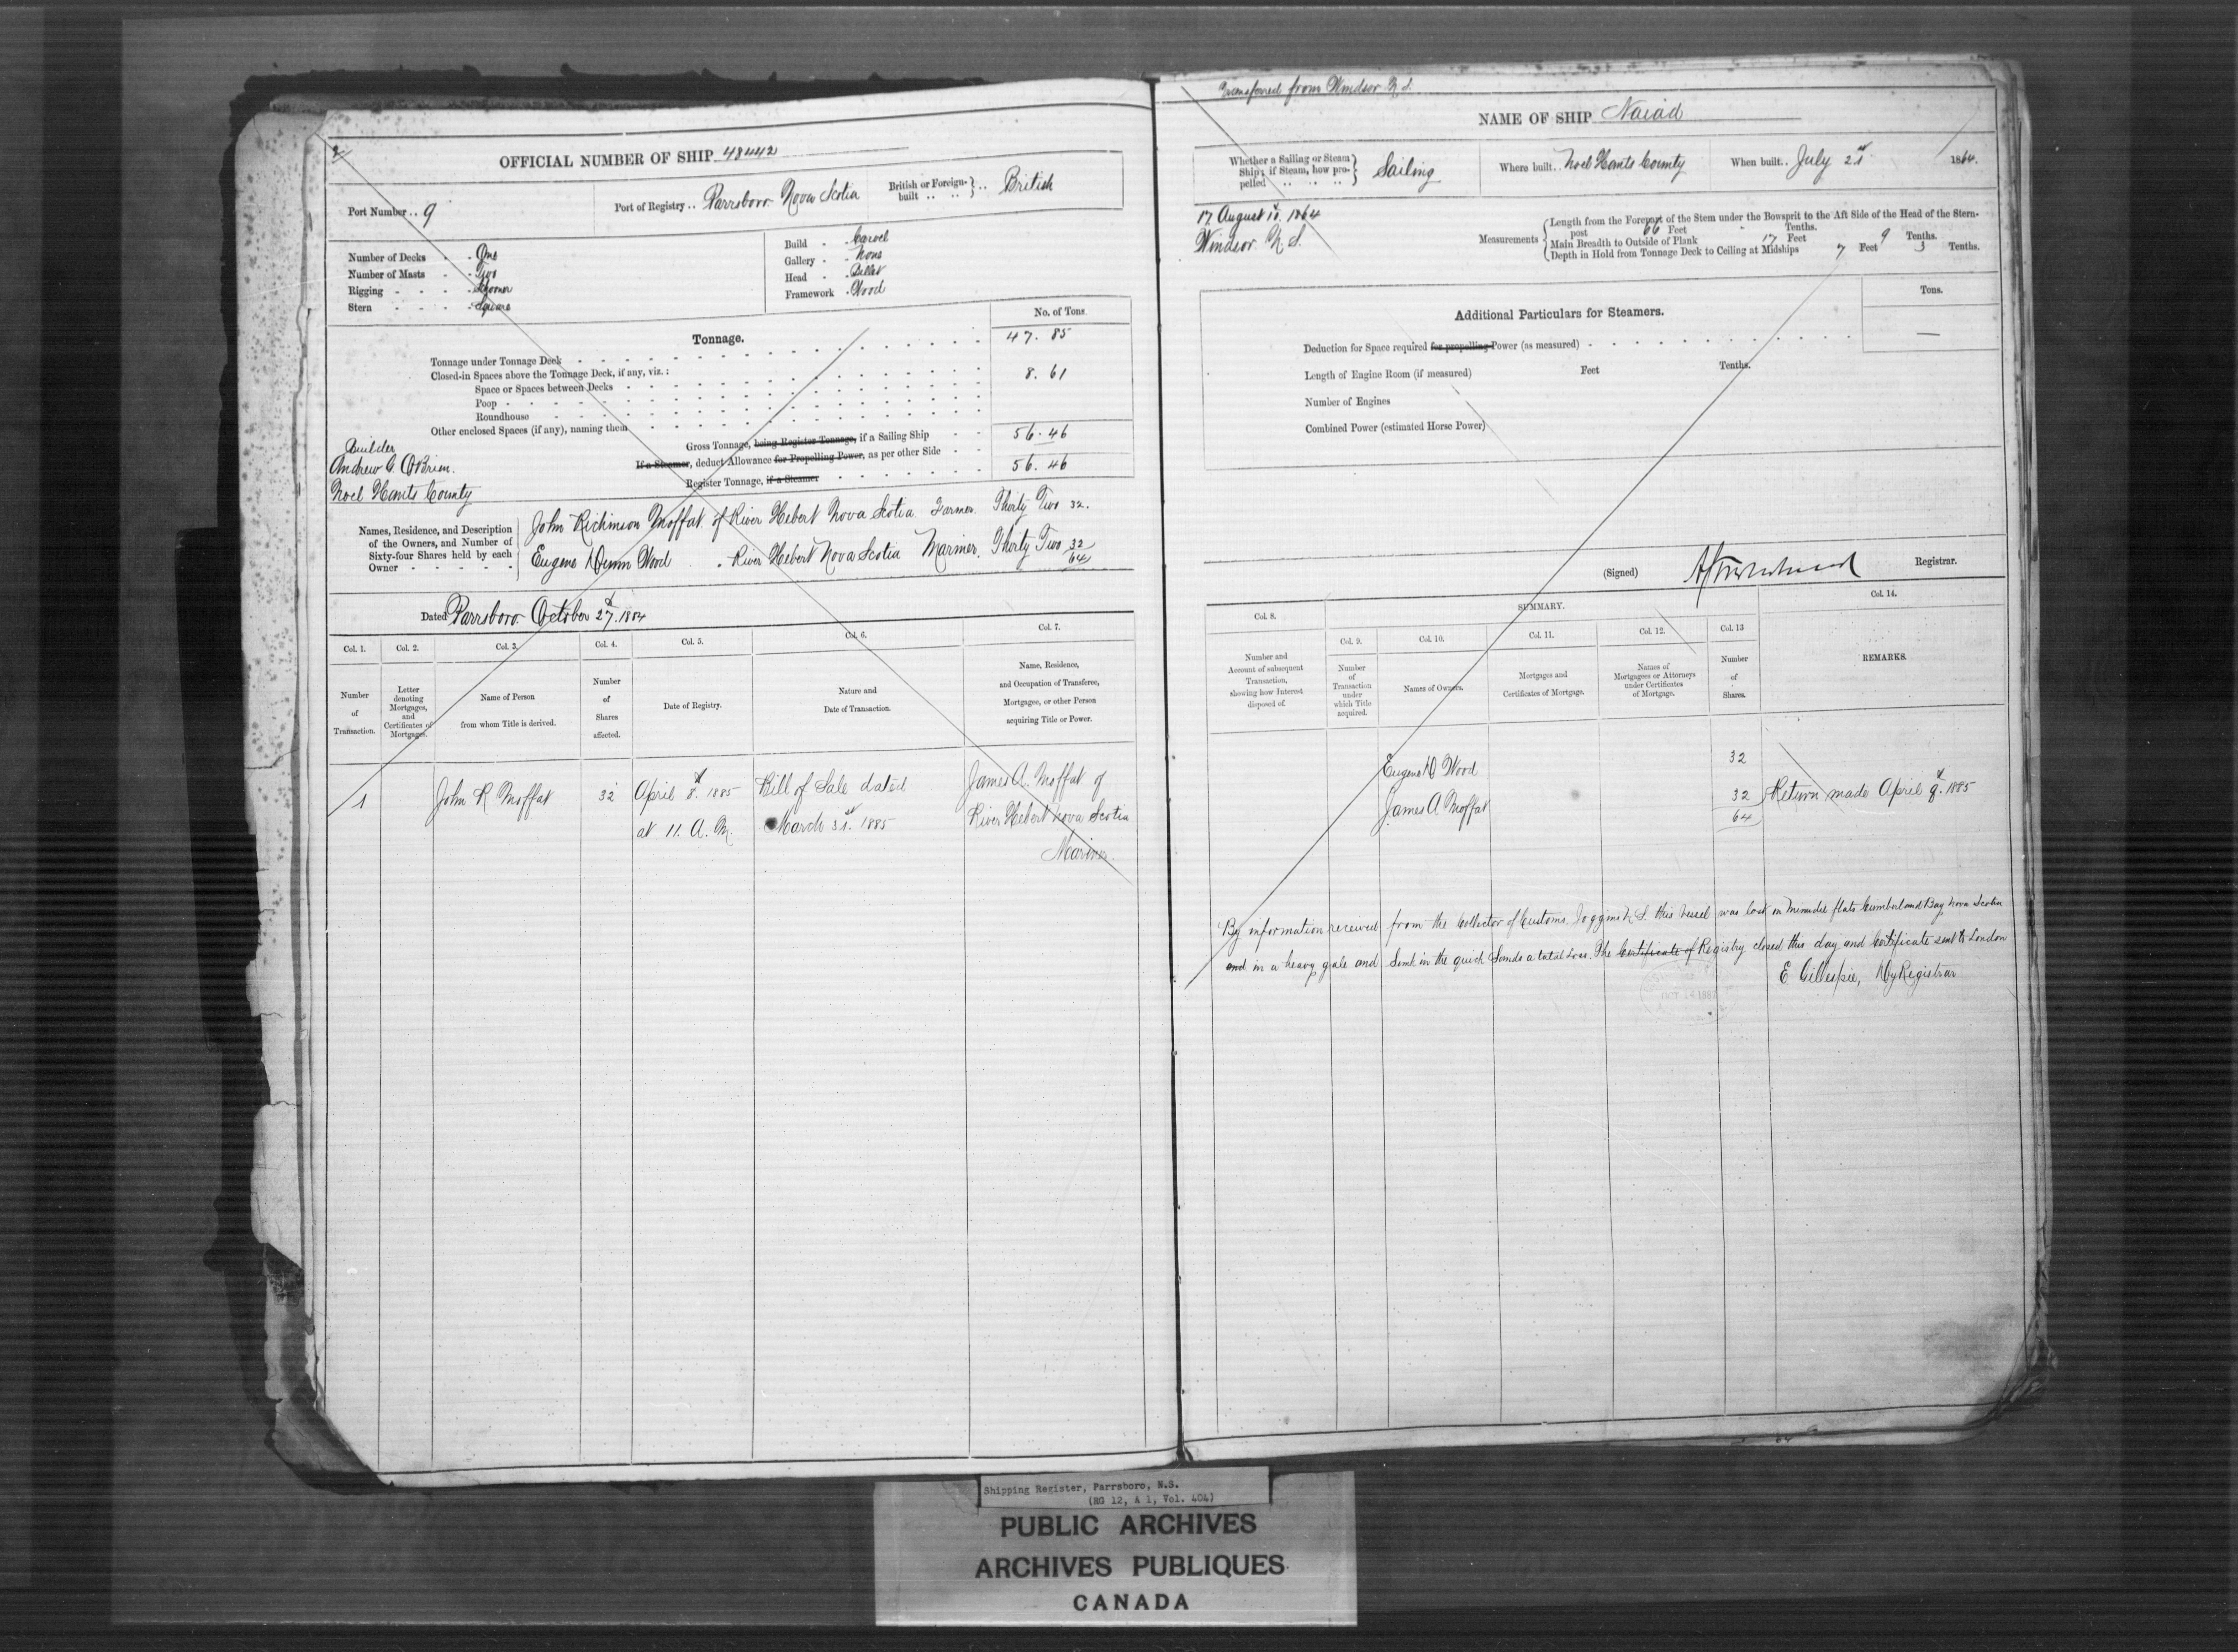 2
OFFICIAL NUMBER OF SHIP 48442
Port Number .. 9
Port of Registry .. Parrsboro Nova Scotia
British or Foreign-built .. British
Number of Decks - - One
Number of Masts - - Two
Rigging - - - - Schooner
Stern - - - - Square
Build - - Carvel
Gallery - - None
Head - - Billet
Framework - Wood
Tonnage.
No. of Tons
Tonnage under Tonnage Deck 47. 85
Closed-in Spaces above the Tonnage Deck, if any, viz.:
Space or Spaces between Decks 8. 61
Poop
Roundhouse
Other enclosed Spaces (if any), naming them
Gross Tonnage, being Register Tonnage, if a Sailing Ship 56. 46
If a Steamer, deduct Allowance for Propelling Power, as per other Side
Register Tonnage, if a Steamer 56. 46
Builder
Andrew O'Brien.
Noel Hants County
Names, Residence, and Description
of the Owners, and Number of
Sixty-four Shares held by each
Owner
John Richinson Moffat of River Hebert Nova Scotia Farmer. Thirty Two 32.
Eugene Dunn Wood . River Hebert Nova Scotia Mariner, Thirty Two 32
64
Dated Parrsboro October 27. 1884
Col. 1. Col. 2. Col. 3. Col. 4. Col. 5. Col. 6. Col. 7.
Number
of
Transaction.
Letter
denoting
Mortgages,
and
Certificates of
Mortgages.
Name of Person
from whom Title is derived.
Number
of
Shares
affected.
Date of Registry.
Nature and
Date of Transaction.
Name, Residence,
and Occupation of Transferee,
Mortgagee, or other Person
acquiring Title or Power.
1 John R Moffat 32 April 8. 1885 Bill of Sale dated James A. Moffat of
at 11. A. M. March 31st. 1885 River Hebert Nova Scotia
Mariner.
Transferred from Windsor N. S.
NAME OF SHIP Naiad
Whether a Sailing or Steam
Ship; if Steam, how pro-
pelled .. .. ..
Sailing
Where built .. Noel Hants County
When built .. July 21st 1864.
17 August 18. 1864
Windsor. N. S.
Measurements
Length from the Forepart of the Stem under the Bowsprit to the Aft Side of the Head of the Stern-
post 66 Feet Tenths.
Main Breadth to Outside of Plank 17 Feet 9 Tenths.
Depth in Hold from Tonnage Deck to Ceiling at Midships 7 Feet 3 Tenths.
Tons.
Additional Particulars for Steamers.
Deduction for Space required for propelling Power (as measured) —
Length of Engine Room (if measured) Feet Tenths.
Number of Engines
Combined Power (estimated Horse Power)
(Signed) Registrar.
SUMMARY.
Col. 8. Col. 9. Col. 10. Col. 11. Col. 12. Col. 13 Col. 14.
Number and
Account of subsequent
Transaction,
showing how Interest
disposed of.
Number
of
Transaction
under
which Title
acquired.
Names of Owners.
Mortgages and
Certificates of Mortgage.
Names of
Mortgagees or Attorneys
under Certificates
of Mortgage.
Number
of
Shares.
REMARKS.
Eugene D Wood 32
James A Moffat 32 Return made April 8. 1885
64
By information received from the Collector of Customs, Joggins N. S. this vessel was lost on Minudie flats Cumberland Bay, Nova Scotia
and in a heavy gale and Sank in the quick Sands a total loss. The Certificate of Registry closed this day and Certificate sent to London
E Gillespie, Dy Registrar
OCT 14 1887
Shipping Register, Parrsboro, N.S.
(RG 12, A 1, Vol. 404)
PUBLIC ARCHIVES
ARCHIVES PUBLIQUES
CANADA